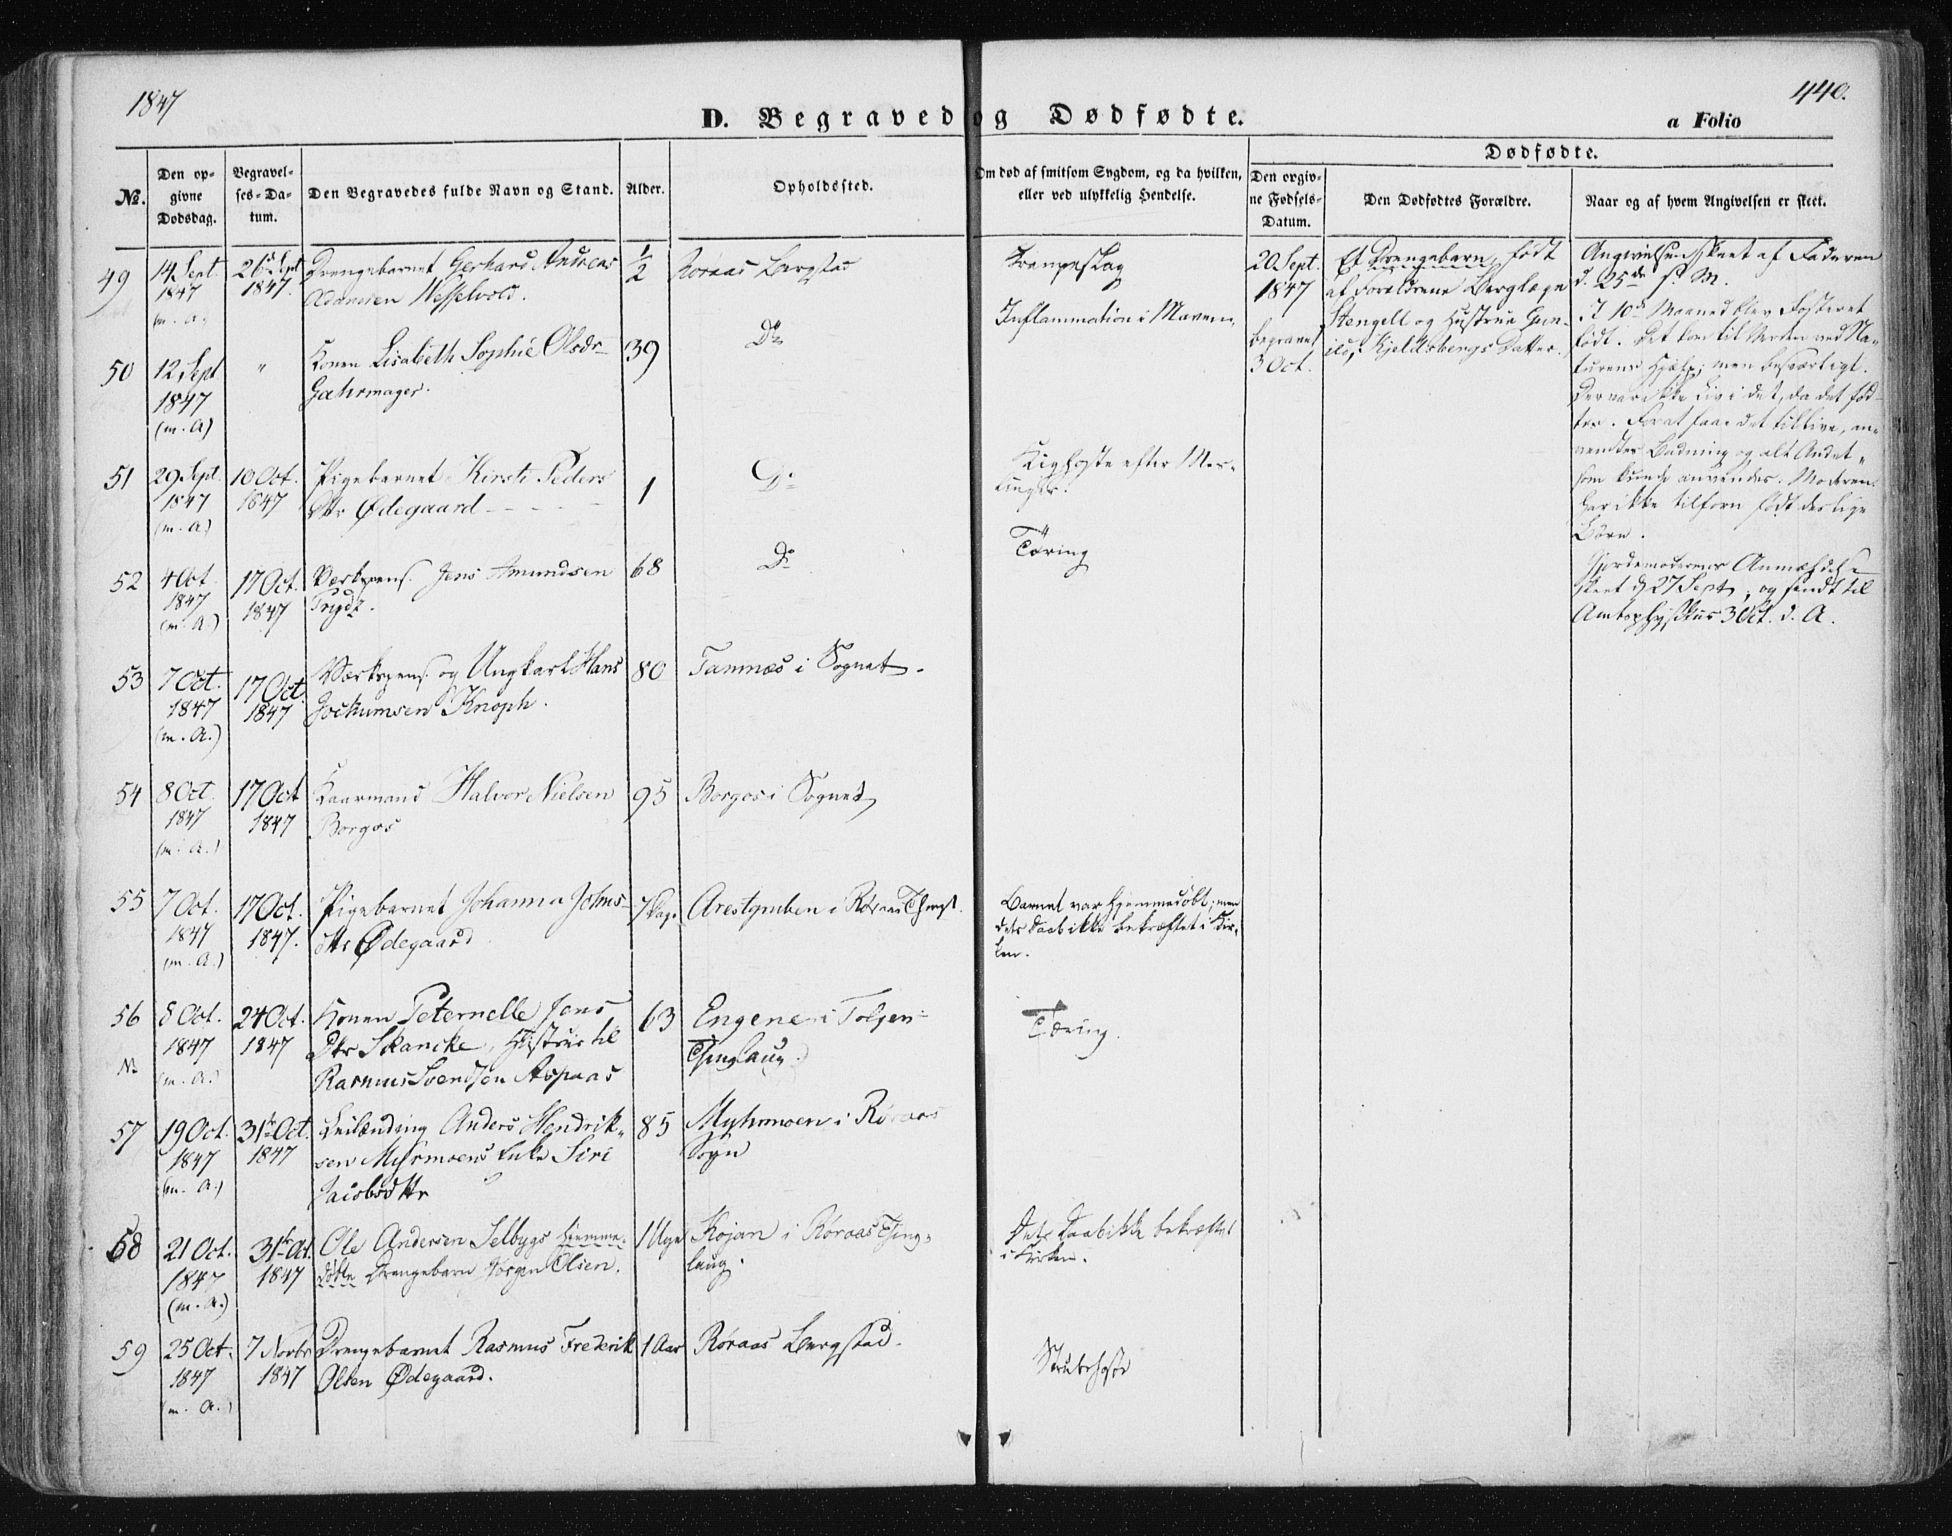 1847
440.
D. Begravede og Dødfødte.
a Folio
Dødfødte.
No.
Den opgivne Dødsdag.
Begravelses-Datum.
Den Begravedes fulde Navn og Stand.
Alder.
Opholdssted.
Om død af smitsom Sygdom, og da hvilken, eller ved ulykkelig Hendelse.
Den opgivne Fødsels-Datum.
Den Dødfødtes Forældre.
Naar og af hvem Angivelsen er skeet.
49 14 Sept. 1847 (m. A.) 26de Sept 1847. Drengebarnet Gerhard
Adamsen Wesselvold. 1/2 Røraas Bergstad Krampeslag
50 12 Sept 1847 (m. A) " Konen Lisabeth Sophie Olsdr
Gahrmager. 39 Do Inflammation i Maven.
51 29 Sept. 1847 (m. A) 10 Oct. 1847 Pigebarnet Kirsti Peders
Dtr Ødegaard 1 Do Kighoste efter Mes-
linger.
52 4 Oct. 1847 (m. A.) 17 Oct. 1847 Værkspens. Jens Amundsen
Trydz. 68 Do Tæring
53 7 Oct. 1847 (m. A.) 17 Oct. 1847 Værkspens. og Ungkarl Hans
Jochumsen Knoph. 80 Tamnæs i Sognet.
54 8 Oct 1847 (m. A.) 17 Oct 1847 Kaarmand Halvor Nielsen
Borgos 95 Borgos i Sognet
55 7 Oct. 1847 (m. A.) 17 Oct. 1847. Pigebarnet Johanna Johns-
dtr Ødegaard 7 Dage i Røraas Thingl. Barnet var hjemmedøbt; men
dets Daab ikke bekræftet i Kir-
ken.
56 8 Oct. 1847 (m. A.) 24 Oct. 1847 Konen Peternelle Jens
Dtr Skancke, Hustrue til
Rasmus Svendsen Aspaas 63 Engene i Tolgens
Thinglaug. Tæring.
57 19 Oct. 1847 (m. A.) 31te Oct. 1847 Leilænding Anders Hendrik-
sen Myhrmoens Enke Siri
Jacobsdtr 85 Myhrmoen i Røraas
Sogn
58 21 Oct. 1847 (m. A.) 31te Oct. 1847 Ole Andersen Selbygs hjemme-
døbte Drengebarn Jørgen Olsen. 1 Uge Kojan i Røraas Thing-
laug. Dets Daab ikke bekræftet
i Kirken.
59 25 Oct. 1847 (m. A.) 7 Novbr 1847 Drengebarnet Rasmus Frederik
Olsen Ødegaard. 1 Aar Røraas Bergstad. Strubehoste
20 Sept. 1847
begravet
3 Oct.
Et Drengebarn, født
af Forældrene Berglæge
Stengell og Hustrue Gun-
ild Kjeldsbergs Datter.
Angivelsen skeet af Faderen
d. 25de s. M.
I 10de Maaned blev Fosteret
født. Det kom til Verden ved Na-
turens Hjælp; men besværligt.
Der var ikke Liv i det, da det fød-
tes. For at faae det til Live, an-
vendtes Badning og alt Andet,
som kunde anvendes. Moderen
har ikke tilforn født deslige
Børn.
Gjordemoderens Anmældelse
skeet d. 27 Sept, og sendt til
Amtsphysikus 3 Oct. d. A.